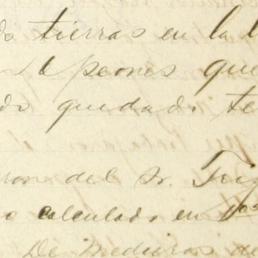 tierras en la
6 peones que
do quedado te
del Sr.
o calculado en
De Medeiros de